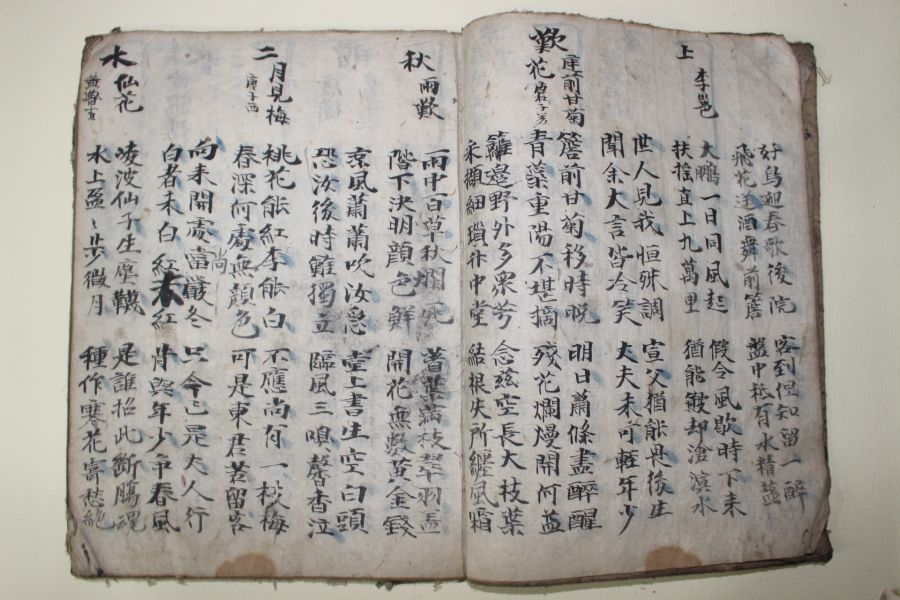 好鳥迎春歌後院 客到但知留一醉
飛花送酒舞前簷 盤中秪有水精鹽
上 李邕
大鵬一日同風起 假令風歇時下來
扶搖直上九萬里 猶能簸却滄溟水
世人見我恒殊調 宣父猶能畏後生
聞余大言皆冷笑 丈夫未可輕年少
歎庭前甘菊花
簷前甘菊移時晩 明日蕭條盡醉醒
青蘂重陽不堪摘 殘花爛熳開何益
籬邊野外多衆芳 念茲空長大枝葉
采擷細瑣升中堂 結根失所纏風霜
秋雨歎
雨中百草秋爛死 著葉滿枝翠羽盖
階下決明顔色鮮 開花無數黃金錢
凉風蕭蕭吹汝急 堂上書生空白頭
恐汝後時難獨立 臨風三嗅馨香泣
二月見梅
桃花能紅李能白 不應尚有一枝梅
春深何處無顔色 可是東君苦留客
尚
向來開處當嚴冬 只今已是丈人行
白者未白紅未紅 肯與年少爭春風
水仙花
凌波仙子生塵韈 是誰招此斷腸魂
水上盈〻步微月 種作寒花寄愁絶